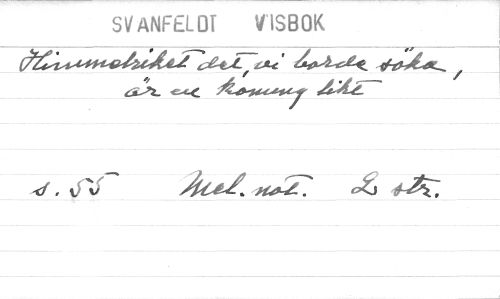 SVANFELDT VISBOK
Himmelriket det, vi borde söka,
är en konung likt
s. 55 Mel. not. 2 str.